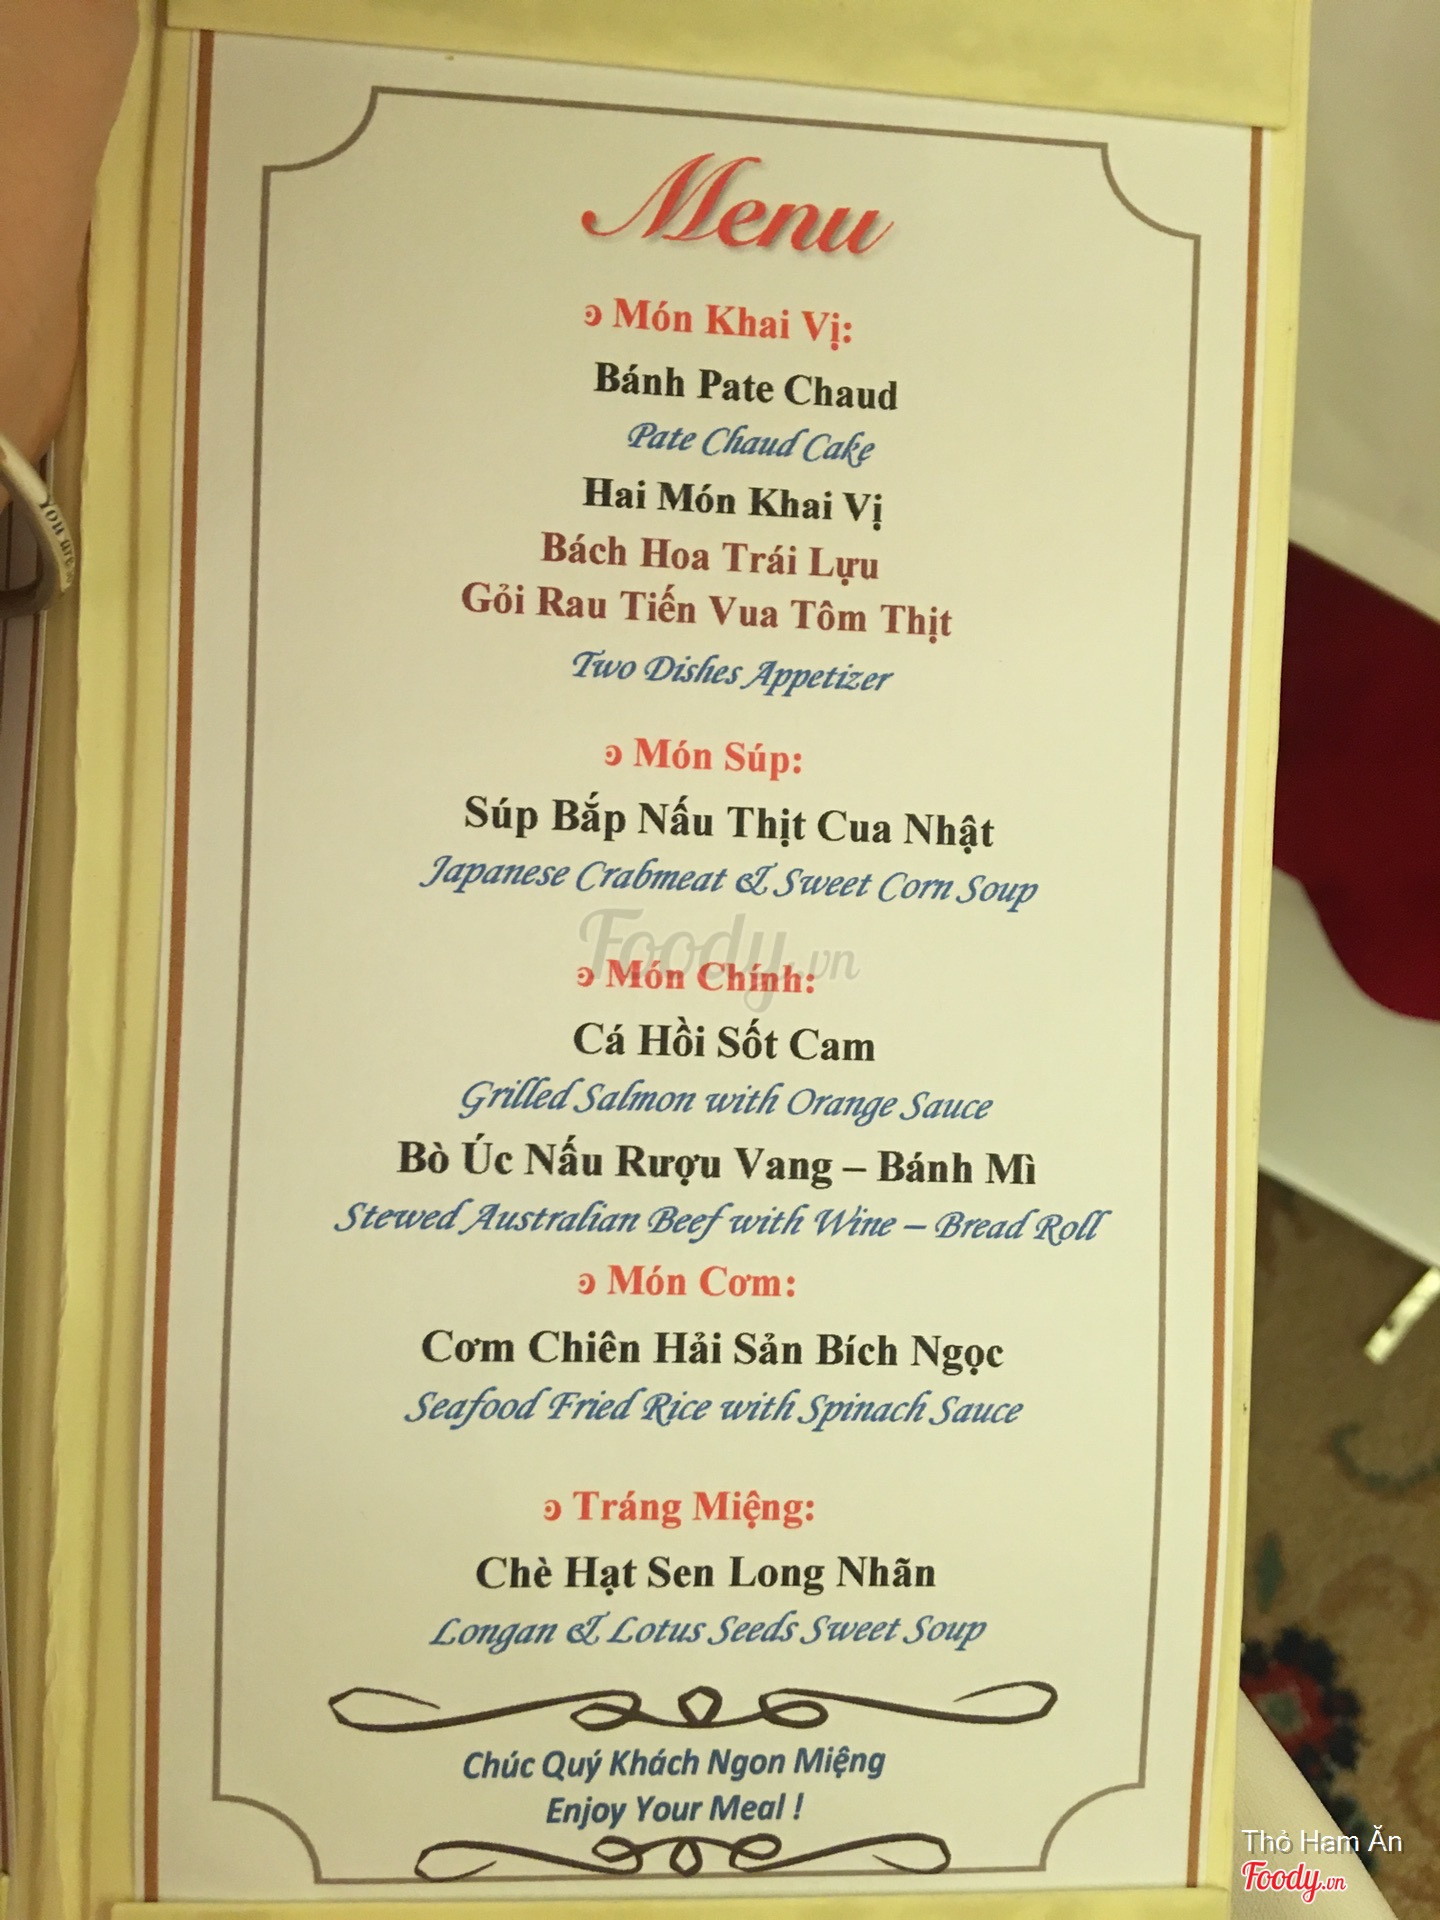 Menu
Món Khai Vị:
Bánh Pate Chaud
Pate Chaud Cake
Hai Món Khai Vị
Bách Hoa Trái Lựu
Gỏi Rau Tiến Vua Tôm Thịt
Two Dishes Appetizer
Món Súp:
Súp Bắp Nấu Thịt Cua Nhật
Japanese Crabmeat & Sweet Corn Soup
Foody.vn
Món Chính:
Cá Hồi Sốt Cam
Grilled Salmon with Orange Sauce
Bò Úc Nấu Rượu Vang – Bánh Mì
Stewed Australian Beef with Wine – Bread Roll
Món Cơm:
Cơm Chiên Hải Sản Bích Ngọc
Seafood Fried Rice with Spinach Sauce
Tráng Miệng:
Chè Hạt Sen Long Nhãn
Longan & Lotus Seeds Sweet Soup
Chúc Quý Khách Ngon Miệng
Enjoy Your Meal !
Thỏ Ham Ăn
Foody.vn
You are